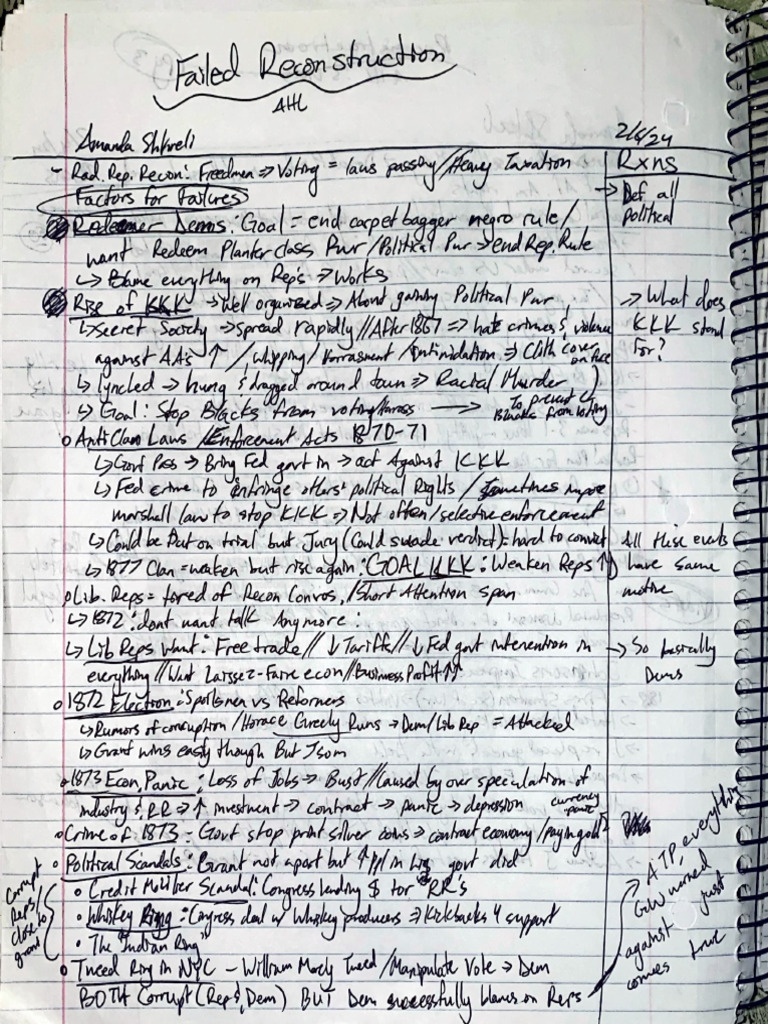 Failed Reconstruction
AHL
Amanda Shkreli
2/6/24
- Rad. Rep. Recon: Freedmen => Voting = laws passing / Heavy Taxation
Rxns
Factors for Failures
→ Def all political
Redeemer Dems: Goal = end carpetbagger negro rule /
want Redeem Planter class Pwr / Political Pwr → end Rep. Rule
↳ Blame everything on Rep's => Works
Rise of KKK → Well organized => About gaining Political Pwr
→ What does KKK stand for?
↳ Secret Society → spread rapidly // After 1867 => hate crimes & violence
against AA's ↑ / whipping / Harrasment / intimidation => Cloth cover on face
↳ lynched → hung & dragged around town => Racial Murder
↳ Goal: Stop Blacks from voting/harass → To prevent Blacks from voting
o Anti Clan Laws / Enforcement Acts 1870-71
↳ Govt Pass → Bring Fed govt in → act Against KKK
↳ Fed crime to infringe others' political Rights / Sometimes impose
marshall law to stop KKK => Not often / selective enforcement
↳ Could be Put on trial but Jury (Could swade verdict) = hard to convict
↳ 1877 Clan = weaken but rise again: GOAL KKK: Weaken Reps ↑
All these events have same motive
o Lib. Reps = tored of Recon Convos. / Short Attention span
↳ 1872: dont want talk Anymore:
↳ Lib Reps want: Free trade // ↓ Tariffs // ↓ Fed govt intervention in
→ So basically Dems
everything // Want Laissez-Faire econ // Business Profit ↑↑
o 1872 Election: Spoilsmen vs Reformers
↳ Rumors of corruption / Horace Greely Runs → Dem/Lib Rep = Attacked
↳ Grant wins easily though But
o 1873 Econ. Panic: Loss of Jobs => Bust // Caused by over speculation of
industry & RR => ↑ investment => contract → panic → depression
currency panic
o Crime of 1873 - Govt stop print silver coins => contract economy / pay in gold
o Political Scandals: Grant not apart but ↑ ppl in his govt did
Corrupt Reps / close to grant
• Credit Moliber Scandal: Congress lending $ for RR's
• Whiskey Ring: Congress deal w/ Whiskey producers => Kickbacks 4 support
• The "Indian Ring"
o Tweed Ring in NYC - William Marcy Tweed / Manipulate Vote → Dem
BOTH Corrupt (Reps & Dem) BUT Dem successfully blames on Reps
→ ATP, everything
GW warned
against just
comes true